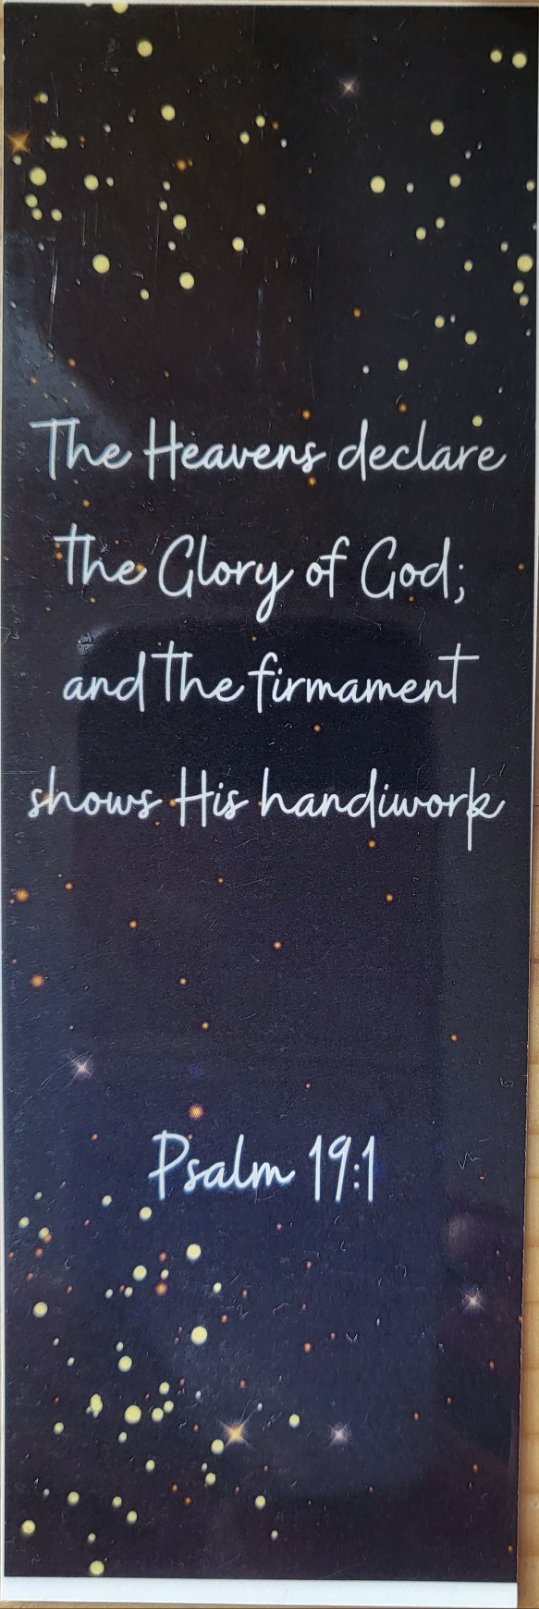 The Heavens declare
the Glory of God;
and the firmament
shows His handiwork
Psalm 19:1